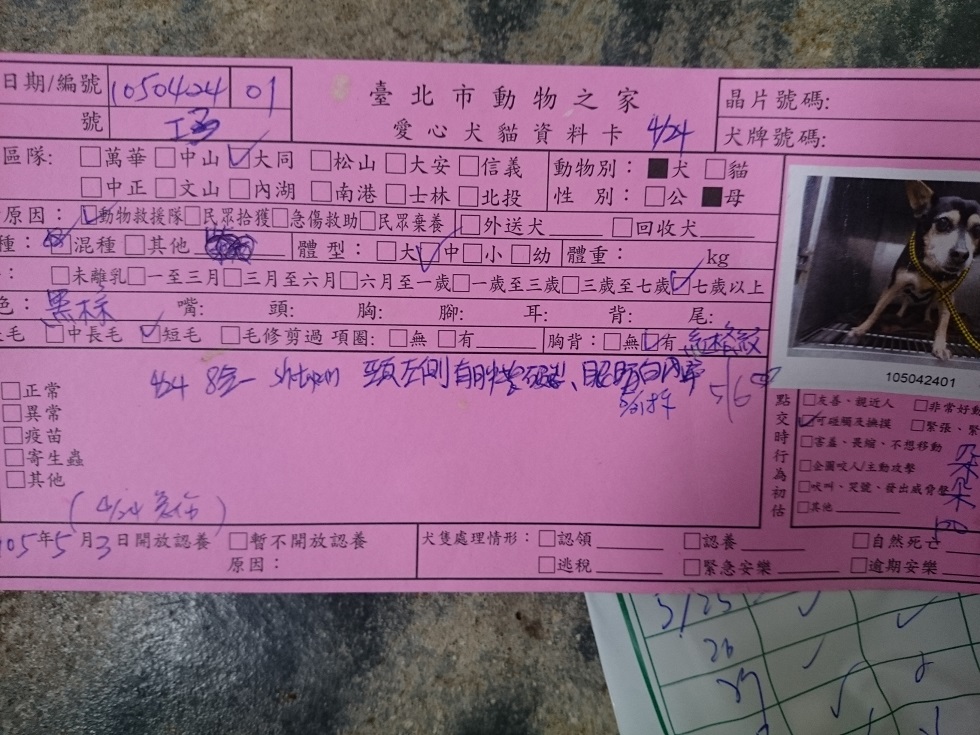 日期/編號 1050424 01
臺北市動物之家
號
愛心犬貓資料卡 4/24
晶片號碼:
犬牌號碼:
區隊: □萬華 □中山 ☑大同 □松山 □大安 □信義
□中正 □文山 □內湖 □南港 □士林 □北投
動物別: ■犬 □貓
性 別: □公 ■母
原因: ☑動物救援隊 □民眾拾獲 □急傷救助 □民眾棄養 □外送犬 □回收犬
種: ☑混種 □其他 體 型: □大 ☑中 □小 □幼 體重: kg
: □未離乳 □一至三月 □三月至六月 □六月至一歲 □一歲至三歲 □三歲至七歲 ☑七歲以上
色: 黑棕 嘴: 頭: 胸: 腳: 耳: 背: 尾:
毛 □中長毛 ☑短毛 □毛修剪過 項圈: □無 □有 胸背: □無 ☑有 紅格紋
4/24 8合一
頸左側有
5/6
□正常
□異常
□疫苗
□寄生蟲
□其他
(4/24 急傷)
105年5月3日開放認養 □暫不開放認養
原因:
犬隻處理情形: □認領 □認養 □自然死亡
□逃稅 □緊急安樂 □逾期安樂
105042401
點交時行為初估
□友善、親近人 □非常好動
☑可碰觸及撫摸 □緊張、緊
□害羞、畏縮、不想移動
□企圖咬人/主動攻擊
□吠叫、哭號、發出威脅聲
□其他
5/25
26
27